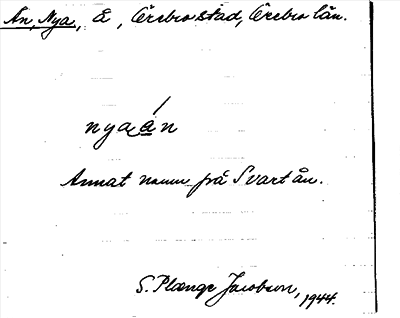 Ån, Nya, Å, Örebro stad, Örebro län.
nya ån
Annat namn på Svartån.
S. Plænge Jacobson, 1944.